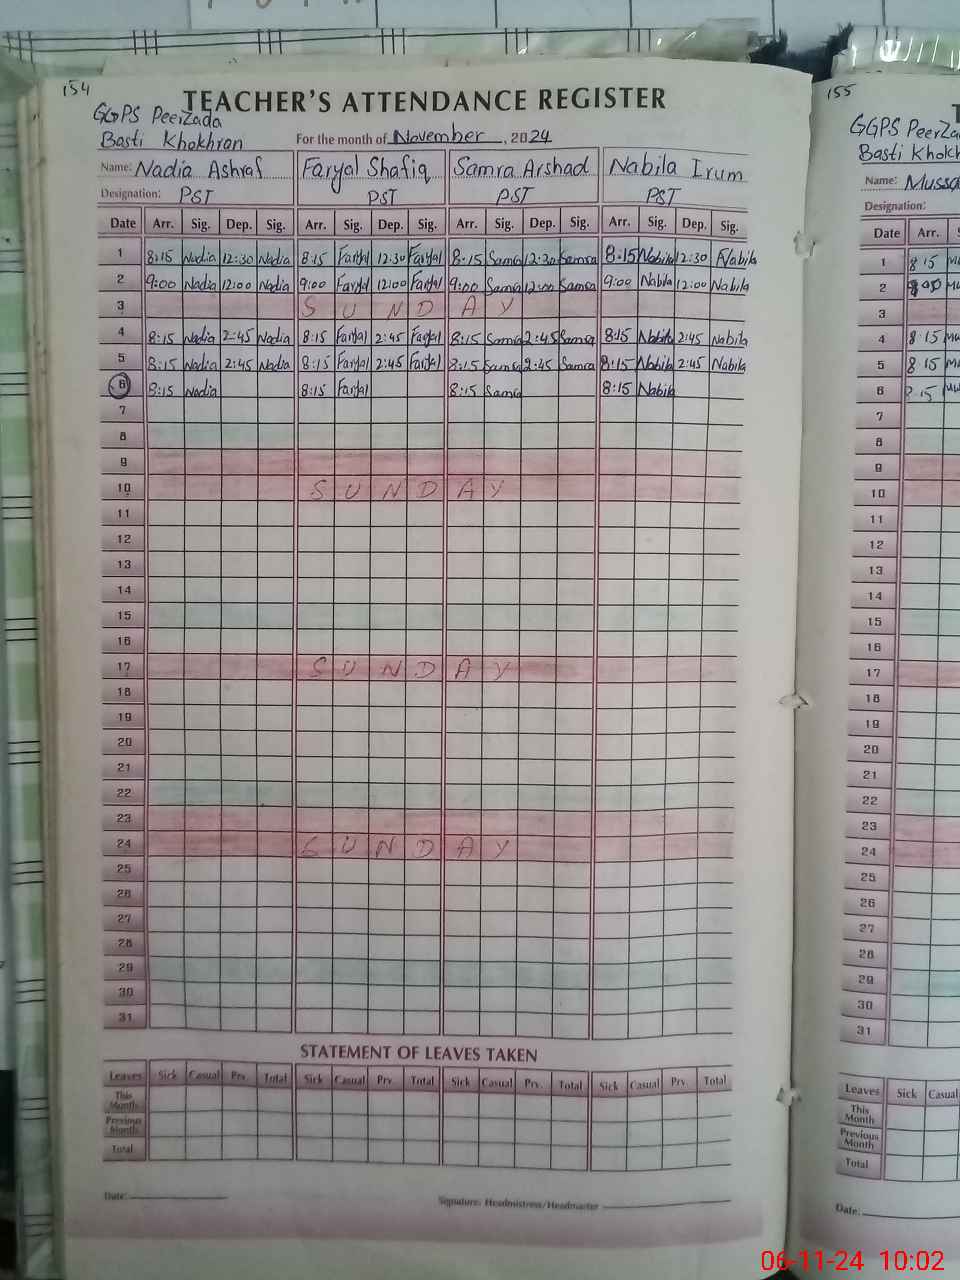 154
TEACHER'S ATTENDANCE REGISTER
GGPS PeerZada
Basti Khokhran
For the month of November, 2024
Name: Nadia Ashraf Faryal Shafiq Samra Arshad Nabila Irum
Designation: PST PST PST PST
Date Arr. Sig. Dep. Sig. Arr. Sig. Dep. Sig. Arr. Sig. Dep. Sig. Arr. Sig. Dep. Sig.
1 8:15 Nadia 12:30 Nadia 8:15 Faryal 12:30 Faryal 8:15 Samra 12:30 Samra 8:15 Nabila 12:30 Nabila
2 9:00 Nadia 12:00 Nadia 9:00 Faryal 12:00 Faryal 9:00 Samra 12:00 Samra 9:00 Nabila 12:00 Nabila
3 SUNDAY
4 8:15 Nadia 2:45 Nadia 8:15 Faryal 2:45 Faryal 8:15 Samra 2:45 Samra 8:15 Nabila 2:45 Nabila
5 8:15 Nadia 2:45 Nadia 8:15 Faryal 2:45 Faryal 8:15 Samra 2:45 Samra 8:15 Nabila 2:45 Nabila
6 8:15 Nadia 8:15 Faryal 8:15 Samra 8:15 Nabila
7
8
9
10 SUNDAY
11
12
13
14
15
16
17 SUNDAY
18
19
20
21
22
23
24 SUNDAY
25
26
27
28
29
30
31
STATEMENT OF LEAVES TAKEN
Leaves Sick Casual Prv. Total Sick Casual Prv. Total Sick Casual Prv. Total Sick Casual Prv. Total
This Month
Previous Month
Total
Date:
Signature: Headmistress/Headmaster
155
GGPS PeerZa
Basti Khokh
Name:
Designation:
Date Arr.
1 8 15
2
3
4 8 15
5 8 15
6 8 15
7
8
9
10
11
12
13
14
15
16
17
18
19
20
21
22
23
24
25
26
27
28
29
30
31
Leaves Sick Casual
This Month
Previous Month
Total
Date:
06-11-24 10:02